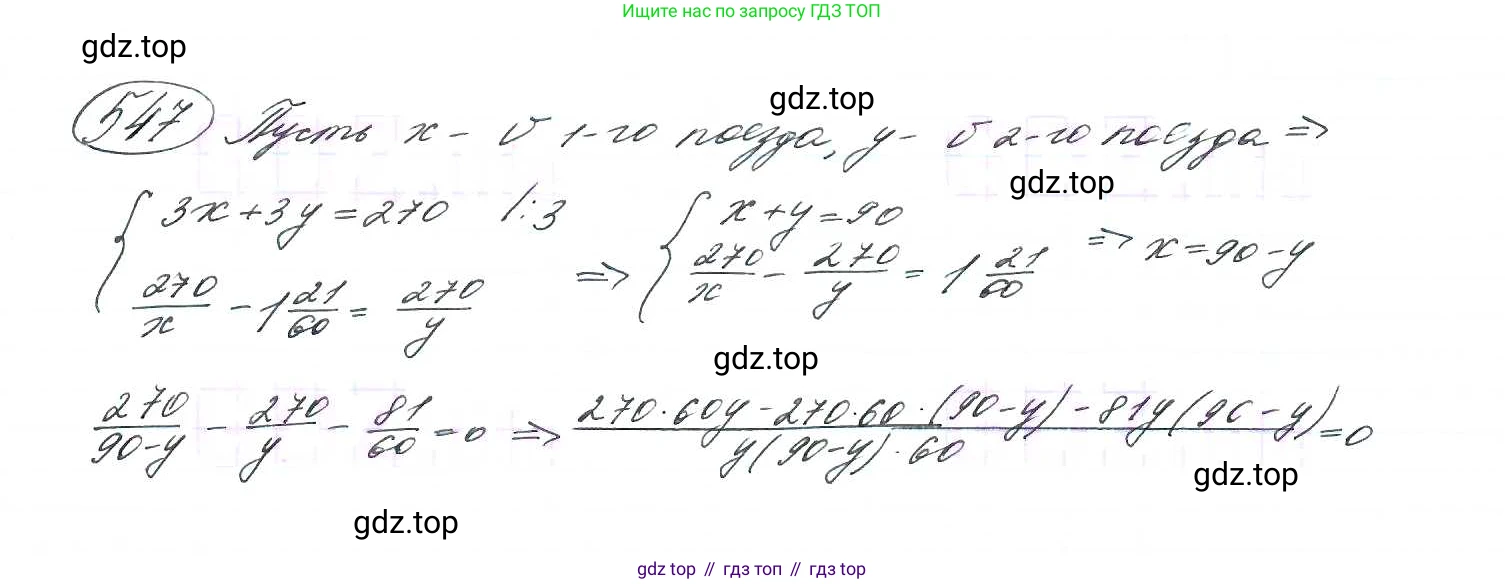 Ищите нас по запросу ГДЗ ТОП
gdz.top
547 Пусть x - v 1-го поезда, y - v 2-го поезда =>
gdz.top
gdz.top
{ 3x + 3y = 270 |:3
270/x - 1 21/60 = 270/y
=> { x + y = 90
270/x - 270/y = 1 21/60
=> x = 90 - y
gdz.top
270/(90-y) - 270/y - 81/60 = 0 => (270·60y - 270·60·(90-y) - 81y(90-y))/(y(90-y)·60) = 0
gdz.top
gdz.top
gdz top // гдз топ // гдз top